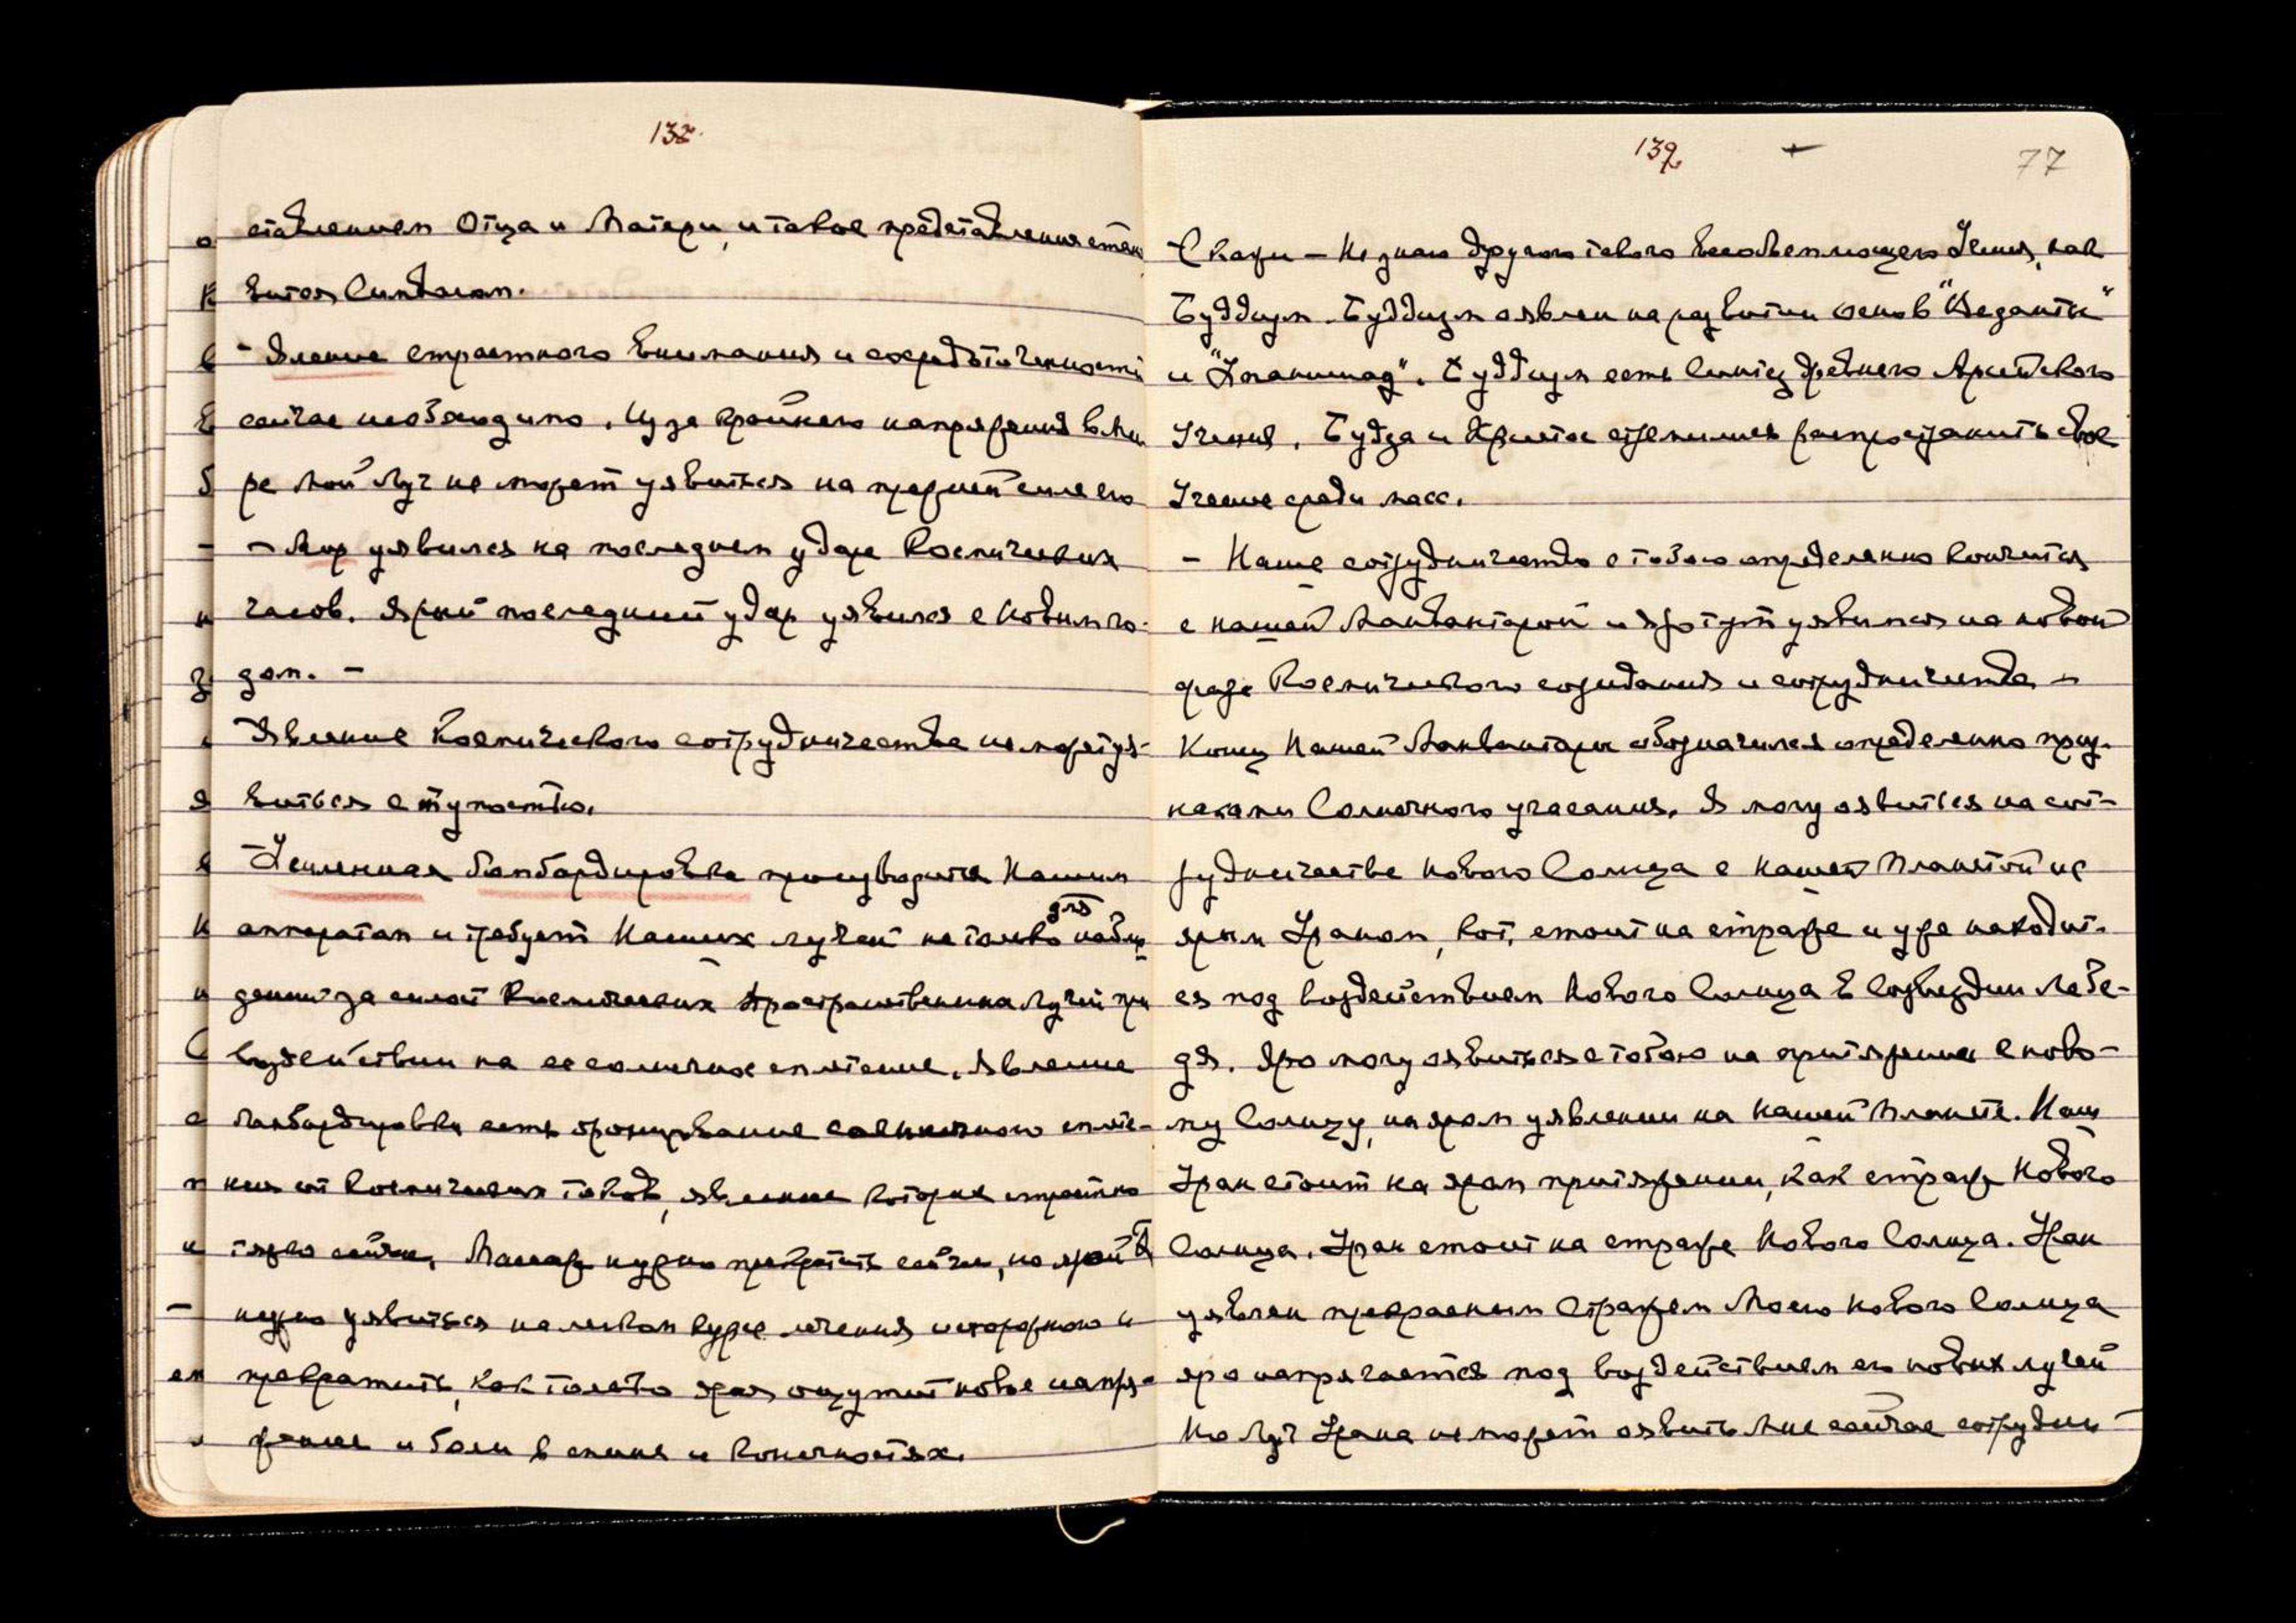 132.
ставлением Отца и Матери, и такое представление стано
вится Символом.
- Явление страстного внимания и сосредоточенности
сейчас необходимо. Из за крайнего напряжения в Ми
ре Мой Луч не может уявиться на прежней силе его
- Мир уявился на последнем ударе Космических
часов. Ярый последний удар уявился с Новым го-
дом. -
Явление Космического сотрудничества не может уя-
виться с тупостью.
- Усиленная бомбардировка производится Нашим
аппаратом и требует Наших лучей не только для наблю
дений за силой Космических Пространственных Лучей при
воздействии на ее солнечное сплетение. Явление
бомбардировки есть бронирование солнечного сплете-
ния от Космических токов, явление которых страстно
тяжко сейчас. Массаж нужно прекратить сейчас, но ярой
нужно уявиться на легком курсе лечения и
прекратить, как только ярая ощутит новое напря-
жение и боли в спине и конечностях.
139 +
77
Скажи - Не знаю другого такого Учения, как
Буддизм. Буддизм оявлен на развитии основ "Веданты"
и "Упанишад". Буддизм есть Синтез древнего Арийского
Учения. Будда и Христос стремились распространить свое
Учение среди масс.
- Наше сотрудничество с тобою определенно кончится
с нашей Манвантарой и яро тут уявимся на новой
фазе Космического созидания и сотрудничества -
Конец Нашей Манвантары обозначился определенно приз-
наками Солнечного угасания. Я могу оявиться на сот-
рудничестве Нового Солнца с Нашей Планетой не
ярым Ураном, кот. стоит на страже и уже находит-
ся под воздействием Нового Солнца в Созвездии Лебе-
дя. Яро могу оявиться с тобою на притяжении к ново-
му Солнцу, на яром уявлении на Нашей Планете. Наш
Уран стоит на яром притяжении, как страж Нового
Солнца. Уран стоит на страже Нового Солнца. Уран
уявлен прекрасным Стражем Моего Нового Солнца
яро напрягается под воздействием его новых лучей
Но Луч Урана не может оявить Мне сейчас сотрудни-